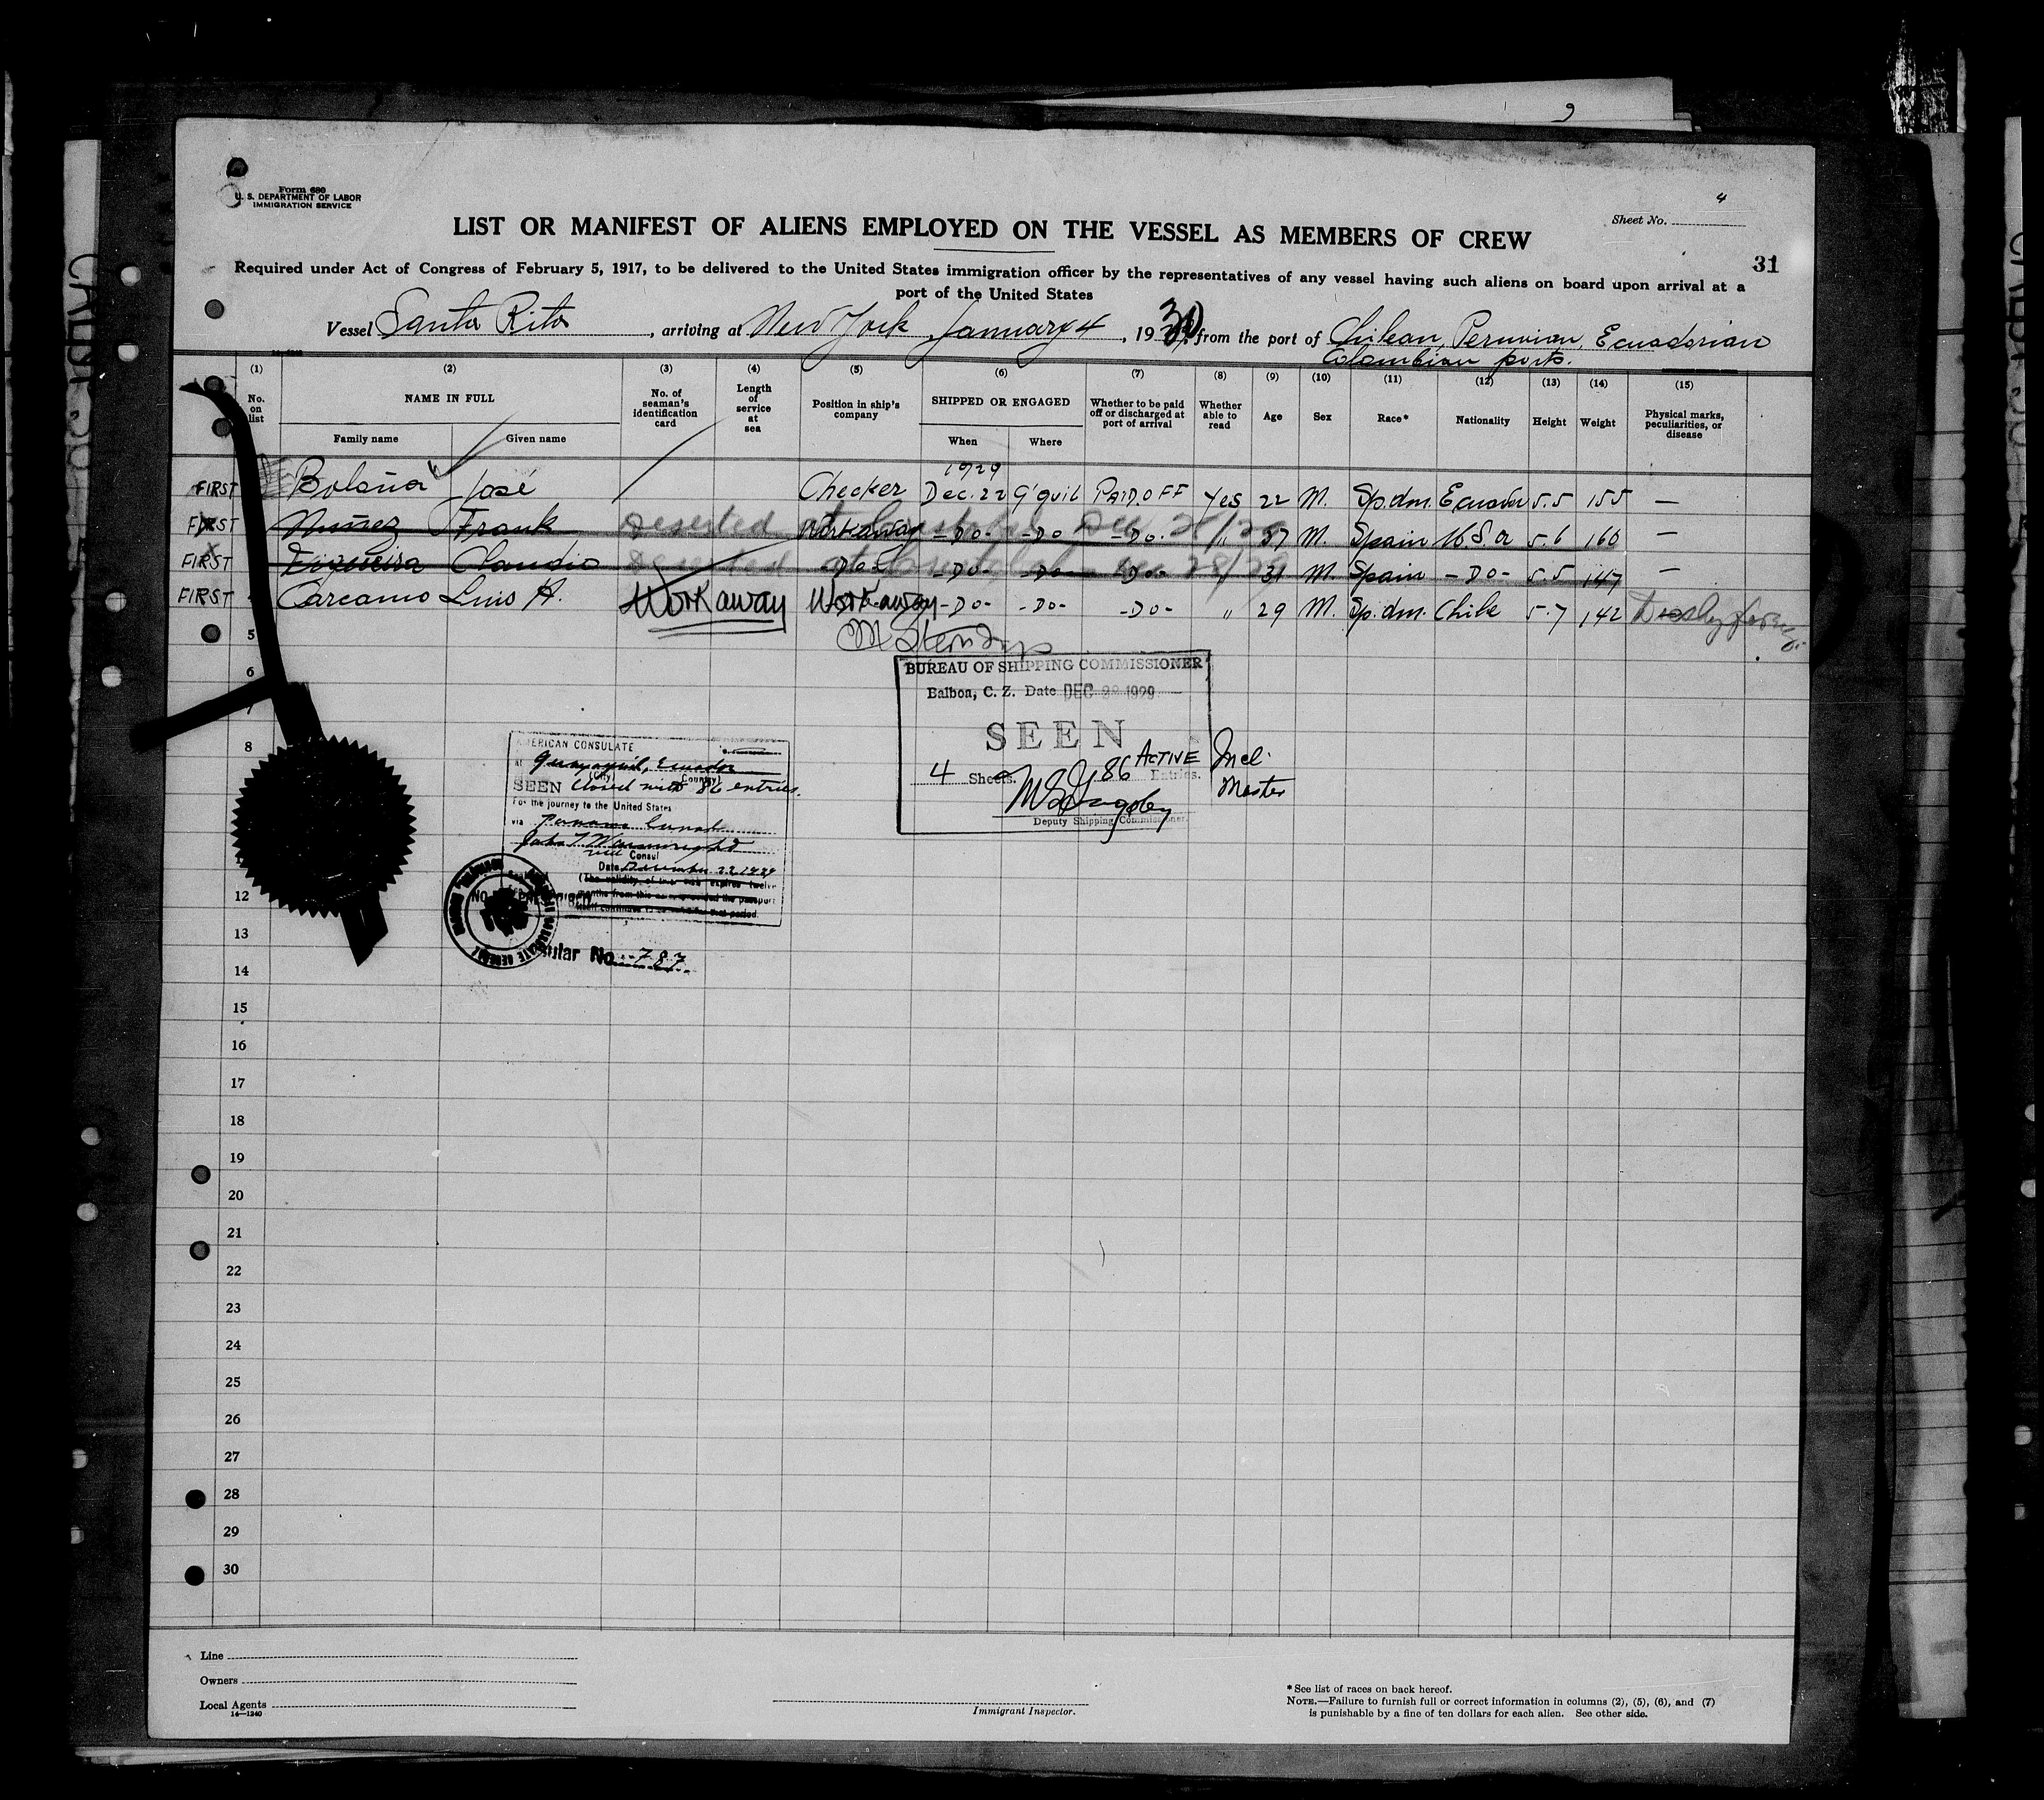 Form 680
U. S. DEPARTMENT OF LABOR
IMMIGRATION SERVICE
Sheet No. 4
LIST OR MANIFEST OF ALIENS EMPLOYED ON THE VESSEL AS MEMBERS OF CREW
31
Required under Act of Congress of February 5, 1917, to be delivered to the United States immigration officer by the representatives of any vessel having such aliens on board upon arrival at a
port of the United States
Vessel Santa Rita, arriving at New York January 4, 1930, from the port of Chilean, Peruvian, Ecuadorian
Colombian ports.
(1) (2) (3) (4) (5) (6) (7) (8) (9) (10) (11) (12) (13) (14) (15)
No. on list
NAME IN FULL
Family name Given name
No. of seaman's identification card
Length of service at sea
Position in ship's company
SHIPPED OR ENGAGED
When Where
Whether to be paid off or discharged at port of arrival
Whether able to read
Age
Sex
Race*
Nationality
Height
Weight
Physical marks, peculiarities, or disease
1929
FIRST Bolaña José Checker Dec. 22 G'quil PAID. OFF Yes 22 M. Sp. dm. Ecuador 5.5 155 —
FIRST Nuñez Frank Deserted Workaway -Do- -Do -Do- " 37 M. Spain U.S.a 5.6 160 —
FIRST Teixeira Claudio Deserted at -Do- -Do- -Do- -Do- " 31 M. Spain -Do- 5.5 147 —
FIRST Carcamo Luis A. Workaway Workaway -Do- -Do- -Do- " 29 M. Sp. dm. Chile 5.7 142
5
6
7
BUREAU OF SHIPPING COMMISSIONER
Balboa, C. Z. Date DEC 1929
SEEN
4 Sheets. 86 ACTIVE Entries. Incl. Master
Deputy Shipping Commissioner
8
AMERICAN CONSULATE
At Guayaquil, Ecuador
(City) (Country)
SEEN Closed with 86 entries.
For the journey to the United States
via Panama Canal
John T. Wainwright
Vice Consul
Date December 22, 1929
(The validity of this visa expires twelve
months from this date provided the passport
itself continues to be valid for that period.
No. 787
12
13
14
15
16
17
18
19
20
21
22
23
24
25
26
27
28
29
30
Line
Owners
Local Agents
14—1240
Immigrant Inspector.
* See list of races on back hereof.
NOTE.—Failure to furnish full or correct information in columns (2), (5), (6), and (7)
is punishable by a fine of ten dollars for each alien. See other side.